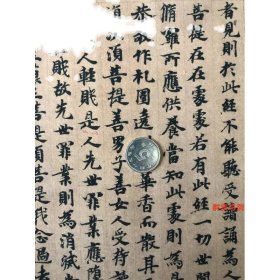 者見則於此経不能聽受讀誦為
菩提在在處處若有此経一切世
脩羅所應供養當知此處則為
恭敬作礼圍遶華香而散其
須菩提善男子善女人受持
人輕賤是人先世罪業應墮
賤故先世罪業則為消滅
菩提須菩提我念過去